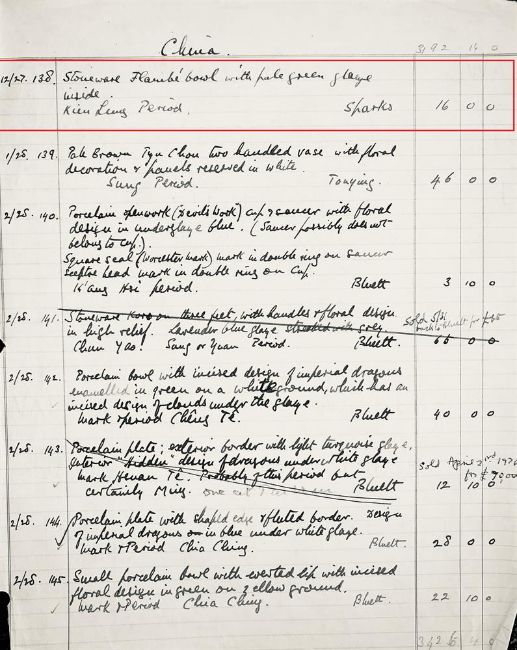 China.
3192 14 0
12/27. 138. Stoneware Flambé bowl with pale green glaze
inside.
Kien Lung Period. Sparks 16 0 0
1/28. 139. Pale Brown Tzu Chou two handled vase with floral
decoration & panels reserved in white.
Sung Period. Tonying. 46 0 0
2/28. 140. Porcelain openwork (Devils Work) cup & saucer with floral
design in underglaze blue. (Saucer possibly does not
belong to Cup.).
Square seal (Worcester mark) mark in double ring on saucer
Sceptre head mark in double ring on Cup.
K'ang Hsi period. Bluett 3 10 0
2/28. 141. Stoneware Koro on three feet, with handles & floral design
in high relief. Lavender blue glaze streaked with grey. Sold
Chun Yao. Sung or Yuan Period. Bluett. 66 0 0
2/28. 142. Porcelain bowl with incised design of imperial dragons
enamelled in green on a white ground, which has an
incised design of clouds under the glaze.
Mark & period Chêng Tê. Bluett 40 0 0
2/28. 143. Porcelain plate; exterior border with light turquoise glaze,
interior "hidden" design of dragons under white glaze
Mark Hsuan Tê. Probably of this period but
certainly Ming. Bluett 12 10 0
Sold April 2nd
2/28. 144. Porcelain plate with shaped edge & fluted border. Design
of imperial dragons in blue under white glaze.
Mark & Period Chia Ching. Bluett. 28 0 0
2/28. 145. Small porcelain bowl with everted lip with incised
floral design in green on yellow ground.
Mark & Period Chia Ching. Bluett. 22 10 0
3426 4 0